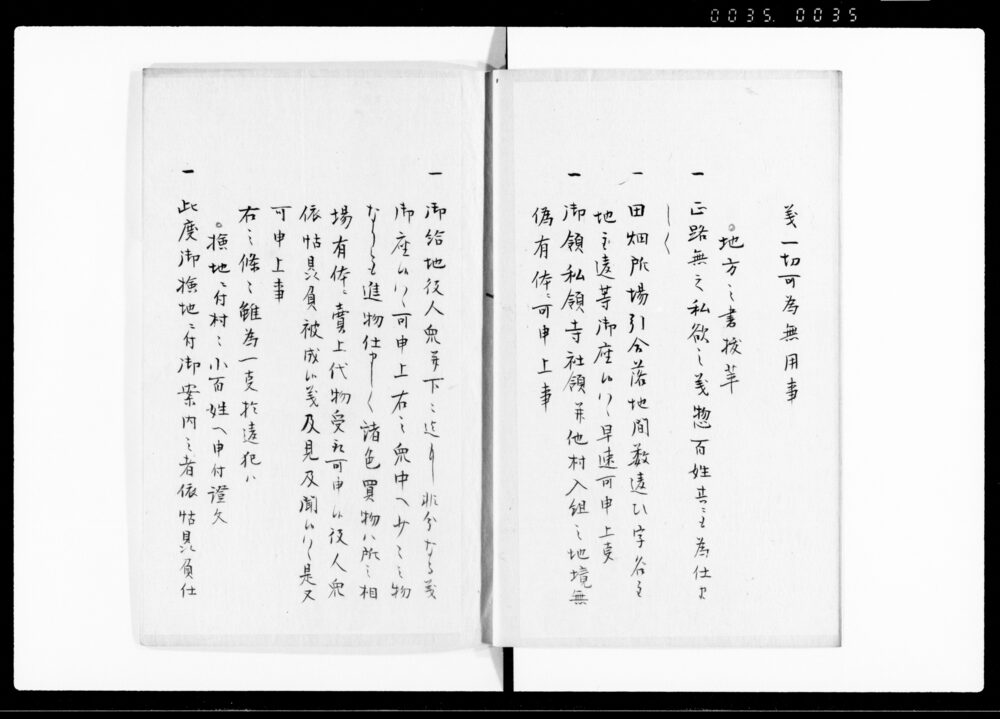 0035. 0035
義一切可為無用事
。地方之書抜草
一 正路無之私欲之義惣百姓共ニも為仕申
一 田畑所場引合落地間数違ひ字谷を
地主違等御座候ハヽ早速可申上事
一 御領私領寺社領并他村入組之地境無
偽有体ニ可申上事
一 御給地役人衆并下々迄も非分なる義
御座候ハヽ可申上右之衆中へ少々之物
なりとも進物仕申 諸色買物ハ所之相
場有体ニ賣上代物受取可申候役人衆
依怙贔負被成候義及見及聞候ハヽ是又
可申上事
右之條々雖為一事於違犯ハ
。検地ニ付村々小百姓へ申付證文
一 此度御検地ニ付御案内之者依怙贔負仕